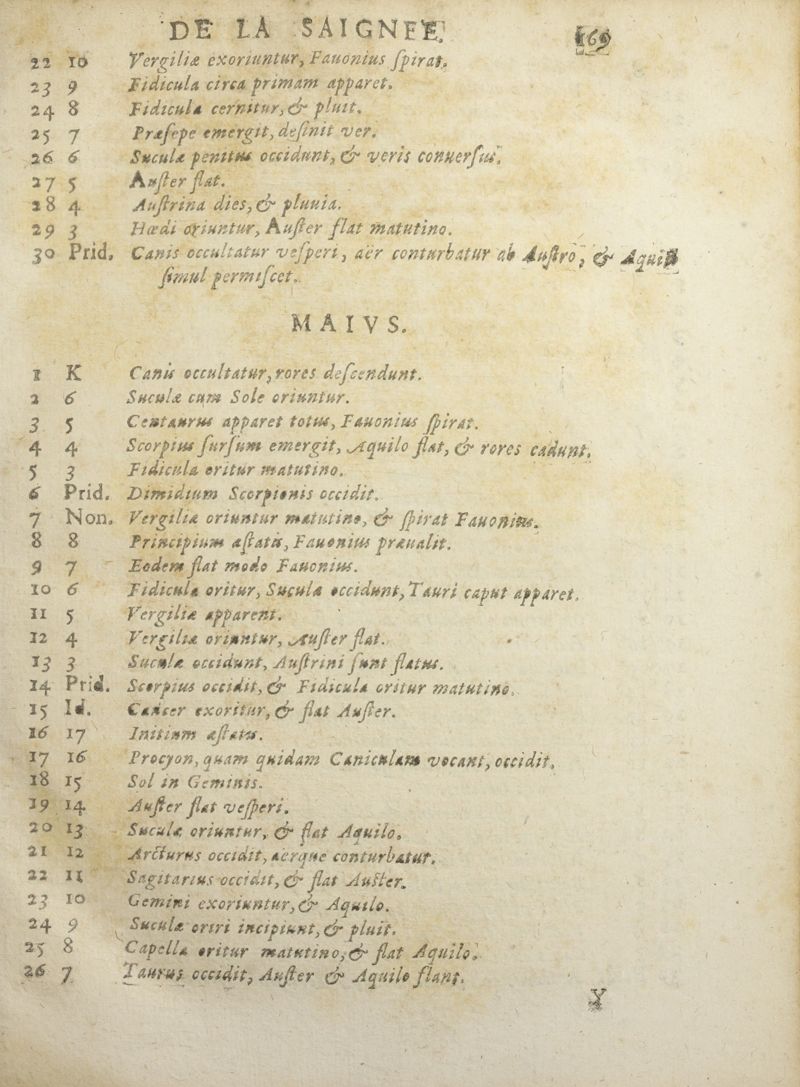 DE LA SAIGNEE. 169
22 10 Vergiliæ exoriuntur, Fauonius ſpirat.
23 9 Fidicula circa primam apparet.
24 8 Fidicula cernitur, & pluit.
25 7 Præſepe emergit, deſinit ver.
26 6 Suculæ penitus occidunt, & veris conuerſus.
27 5 Auſter flat.
28 4 Auſtrina dies, & pluuia.
29 3 Hœdi oriuntur, Auſter flat matutino.
30 Prid. Canis occultatur veſperi, aër conturbatur ab Auſtro, & Aquil
ſimul permiſcet.
MAIVS.
1 K Canis occultatur, rores deſcendunt.
2 6 Suculæ cum Sole oriuntur.
3 5 Centaurus apparet totus, Fauonius ſpirat.
4 4 Scorpius ſurſum emergit, Aquilo flat, & rores cadunt.
5 3 Fidicula oritur matutino.
6 Prid. Dimidium Scorpionis occidit.
7 Non. Vergiliæ oriuntur matutino, & ſpirat Fauonius.
8 8 Principium æſtatis, Fauonius præualit.
9 7 Eodem flat modo Fauonius.
10 6 Fidicula oritur, Sucula occidunt, Tauri caput apparet.
11 5 Vergiliæ apparent.
12 4 Vergiliæ oriuntur, Auſter flat.
13 3 Suculæ occidunt, Auſtrini ſunt flatus.
14 Prid. Scorpius occidit, & Fidicula oritur matutino.
15 Id. Cancer exoritur, & flat Auſter.
16 17 Initium æſtatis.
17 16 Procyon, quam quidam Caniculam vocant, occidit.
18 15 Sol in Geminis.
19 14 Auſter flat veſperi.
20 13 Suculæ oriuntur, & flat Aquilo.
21 12 Arcturus occidit, aerque conturbatur.
22 11 Sagitarius occidit, & flat Auſter.
23 10 Gemini exoriuntur, & Aquilo.
24 9 Suculæ oriri incipiunt, & pluit.
25 8 Capella oritur matutino, & flat Aquilo.
26 7 Taurus occidit, Auſter & Aquilo flant.
Y